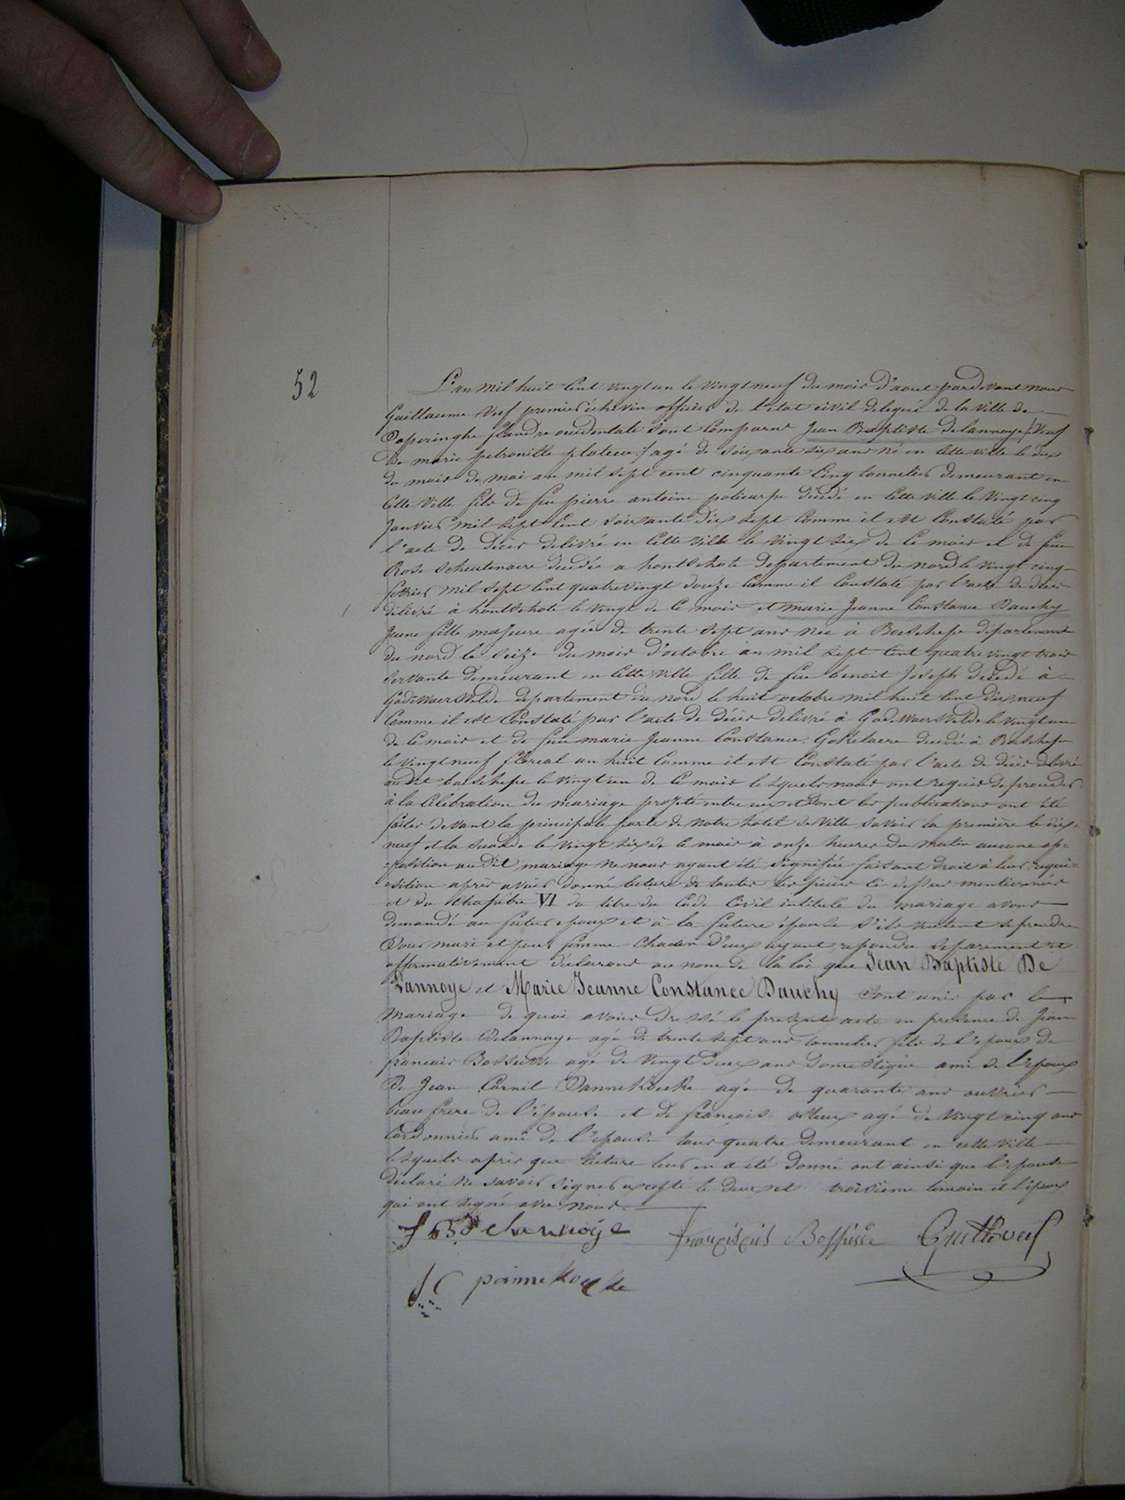 52
L'an mil huit cent vingt un le vingt neuf du mois d'aout pardevant nous
Guillaume Veef premier échevin officier de l'état civil delegué de la ville de
Poperinghe flandre occidentale sont comparus Jean Baptiste Delannoye /: Veuf
de marie petronille :/ agé de soixante six ans né en cette ville le dix
du mois de mai an mil sept cent cinquante cinq tonnelier demeurant en
cette ville fils de feu pierre antoine policarpe décédé en cette ville le vingt cinq
janvier mil sept cent soixante dix sept comme il est constaté par
l'acte de décès delivré en cette ville le vingt six de ce mois et de feue
Rose decedée a hontschote departement du nord le vingt cinq
fevrier mil sept cent quatre vingt douze comme il constaté par l'acte de décès
délivré à hontschote le vingt de ce mois et marie Jeanne Constance Dauchy
Jeune fille majeure agée de trente sept ans née à Boeschepe département
du nord le seize du mois d'octobre an mil sept cent quatre vingt trois
servante demeurant en cette ville fille de feu benoit Joseph décédé à
Godewaersvelde departement du nord le huit octobre mil huit cent dix neuf
comme il est constaté par l'acte de décès delivré à Godewaersvelde le vingt un
de ce mois et de feue marie Jeanne Constance decedée à Boeschepe
le vingt neuf floreal an huit comme il est constaté par l'acte de décès delivré
au dit boeschepe le vingt un de ce mois lesquels nous ont requis de proceder
à la celebration du mariage projeté entre eux et dont les publications ont été
faites devant la principale porte de notre hotel de ville savoir la première le dix
neuf et la seconde le vingt six de ce mois à onze heures du matin aucune op-
-position au dit mariage ne nous ayant été signifiée faisant droit à leur requi-
-sition après avoir donné lecture de toutes les pièces ci dessus mentionnées
et du chapitre VI du titre du Code Civil intitulé du mariage avons
demandé au futur epoux et à la future épouse s'ils veulent se prendre
pour mari et pour femme chacun d'eux ayant repondu separement et
affirmativement declarons au nom de la loi que Jean Baptiste De
Lannoye et Marie Jeanne Constance Dauchy sont unis par le
mariage de quoi avons dressé le present acte en presence de Jean
Baptiste Delannoye agé de trente sept ans tonnelier fils de l'epoux de
francois Bossuwe agé de vingt deux ans domestique ami de l'epoux
de Jean Cornil Pannekoecke agé de quarante ans ouvrier
beau frere de l'épouse et de françois agé de vingt cinq ans
cordonnier ami de l'epouse tous quatre demeurant en cette ville
lesquels après que lecture leur en a été donné ont ainsi que l'epouse
déclaré ne savoir signer excepté le deuxieme troisième temoin et l'époux
qui ont signé avec nous.
J B delannoije franciscus Bossuwe Guill Veef
J C pannekoucke